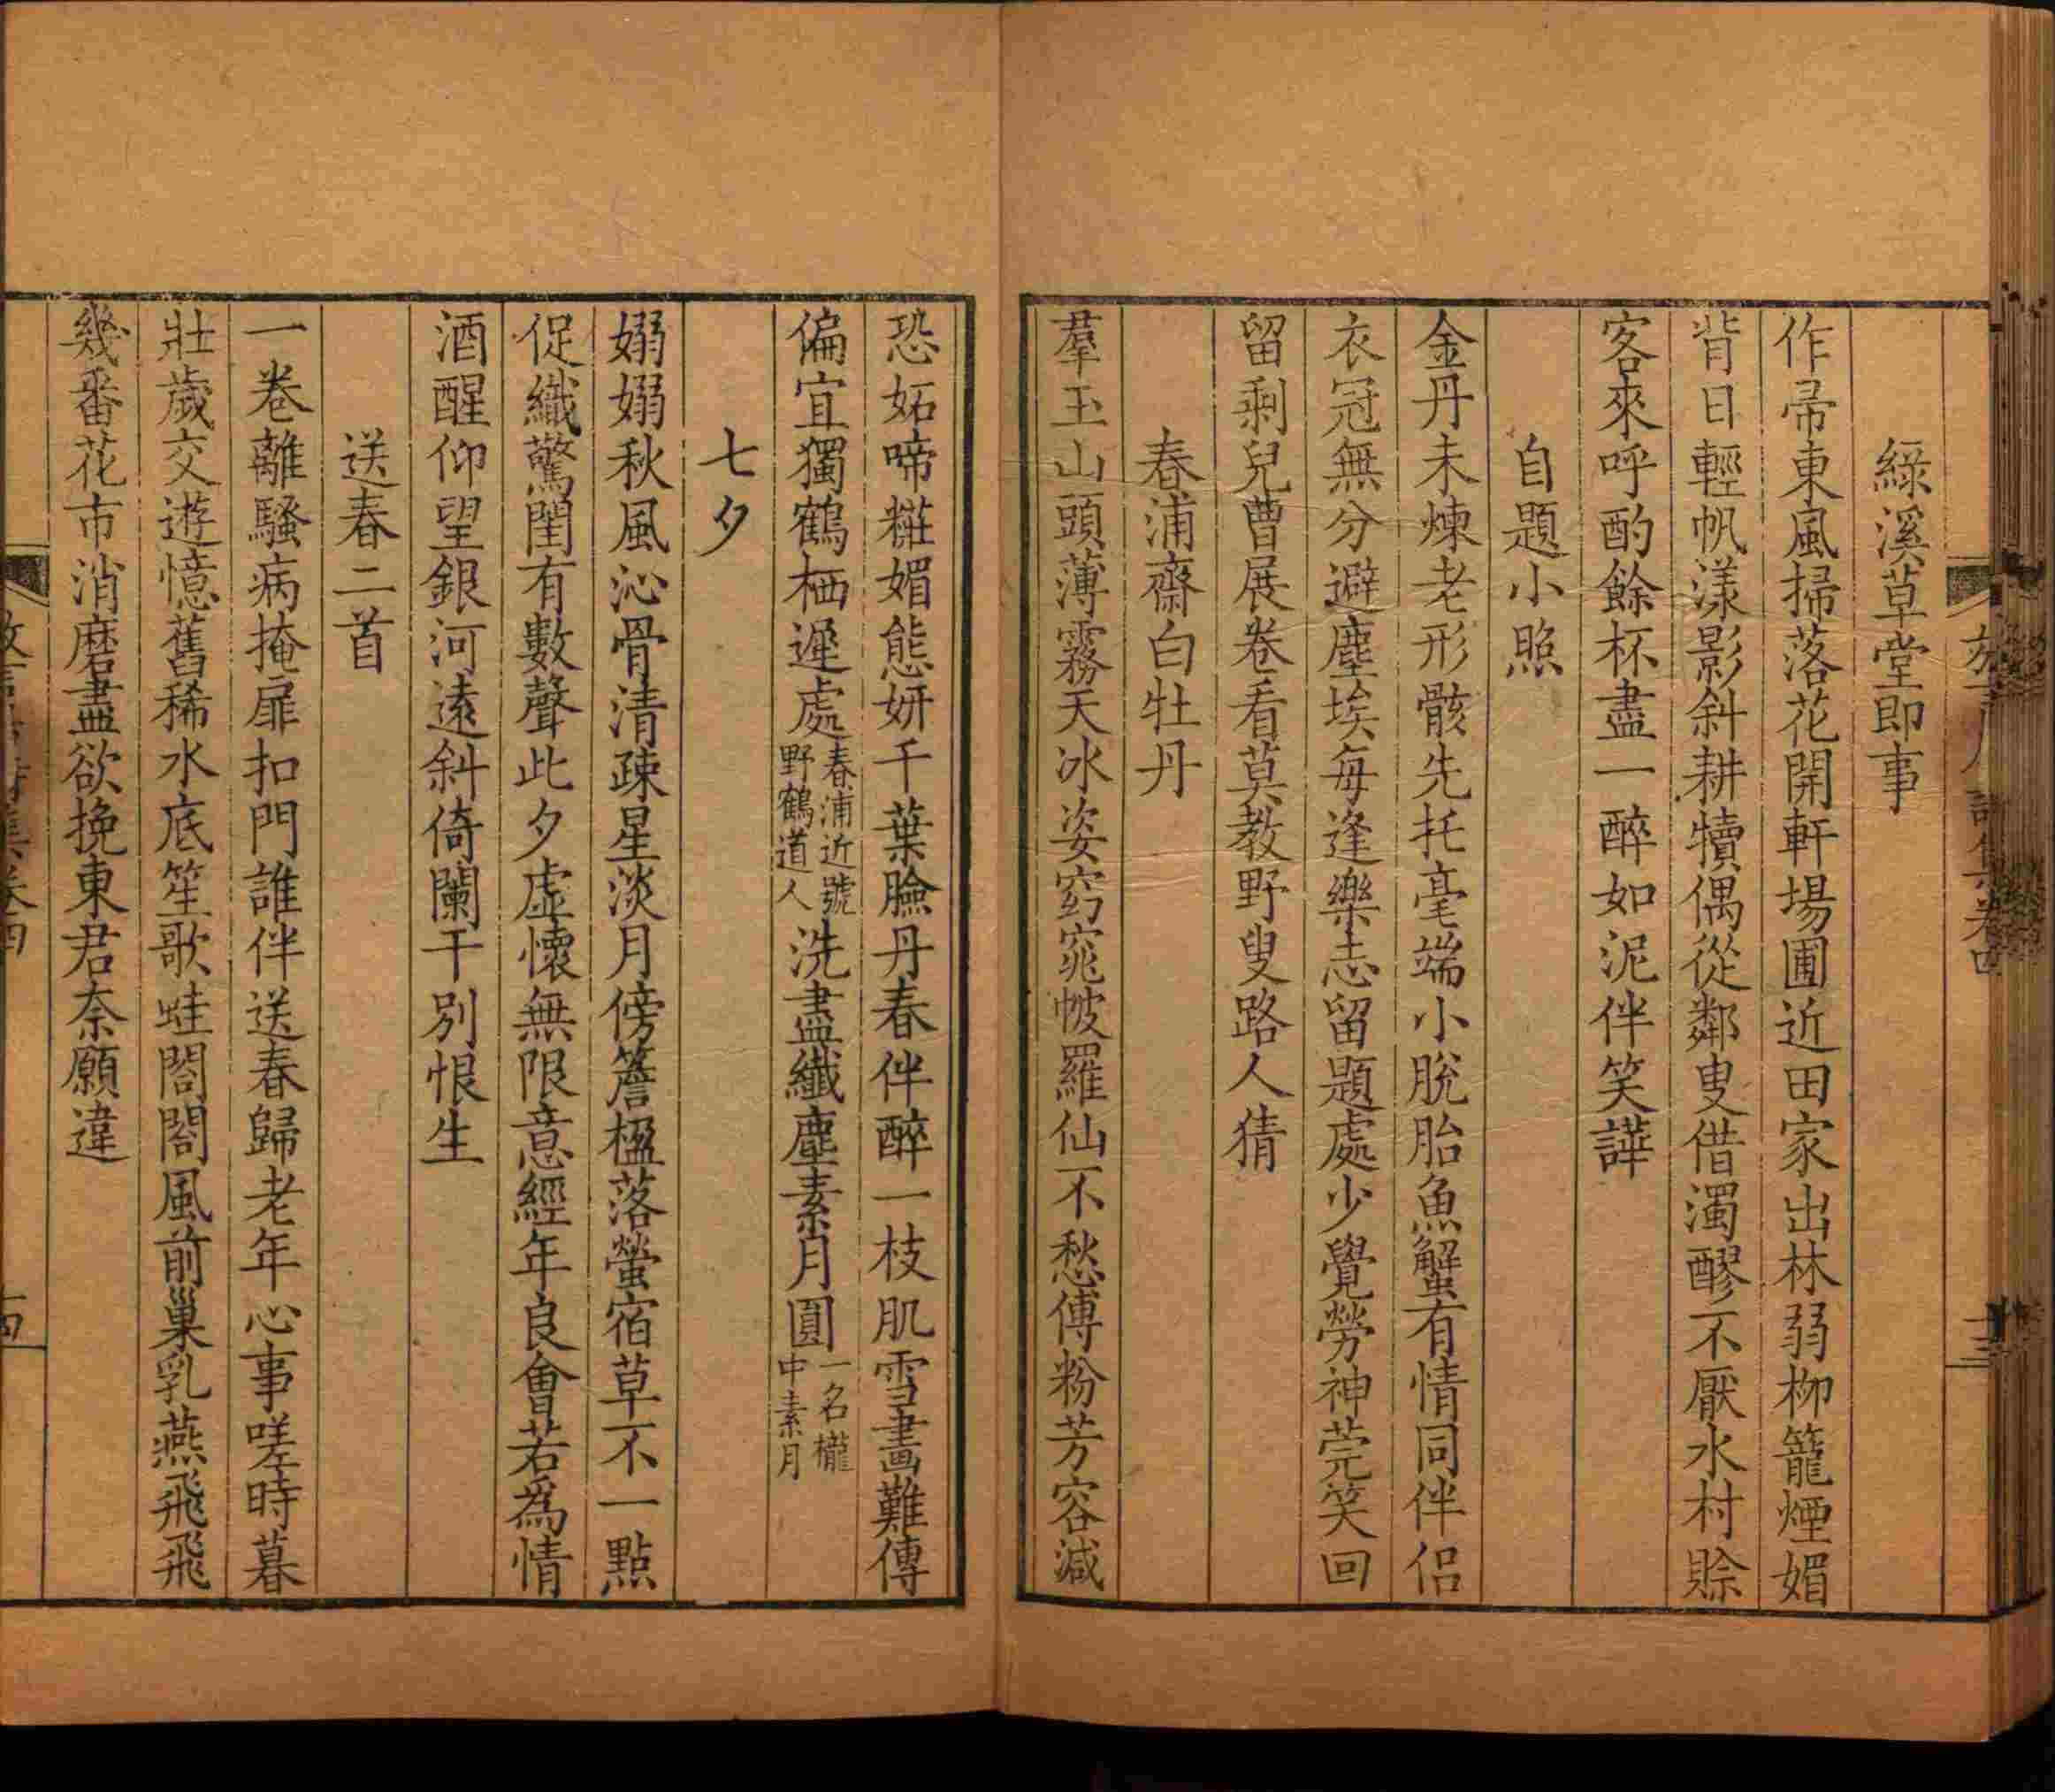 綠溪草堂即事
作帚東風掃落花開軒場圃近田家出林弱栁籠煙媚
背日輕帆漾影斜耕犢偶從鄰叟借濁醪不厭水村賒
客來呼酌餘杯盡一醉如泥伴笑譁
自題小照
金丹未煉老形骸先托毫端小脫胎魚蟹有情同伴侣
衣冠無分避塵埃每逢樂志留題處少覺勞神莞笑回
留剩兒曹展卷看莫教野叟路人猜
春浦齋白牡丹
羣玉山頭薄霧天冰姿窈窕帔羅仙不愁傅粉芳容減
恐妬啼糚媚態妍千葉臉丹春伴醉一枝肌雪畫難傳
偏宜獨鶴栖遲處春浦近號野鶴道人洗盡纖塵素月圓一名櫳中素月
七夕
嫋嫋秋風沁骨清疎星淡月傍簷楹落螢宿草不一點
促織驚閨有數聲此夕虛懷無限意經年良會若為情
酒醒仰望銀河遠斜倚闌干別恨生
送春二首
一卷離騷病掩扉扣門誰伴送春歸老年心事嗟時暮
壯歲交遊憶舊稀水底笙歌蛙閤閤風前巢乳燕飛飛
幾番花市消磨盡欲挽東君奈願違